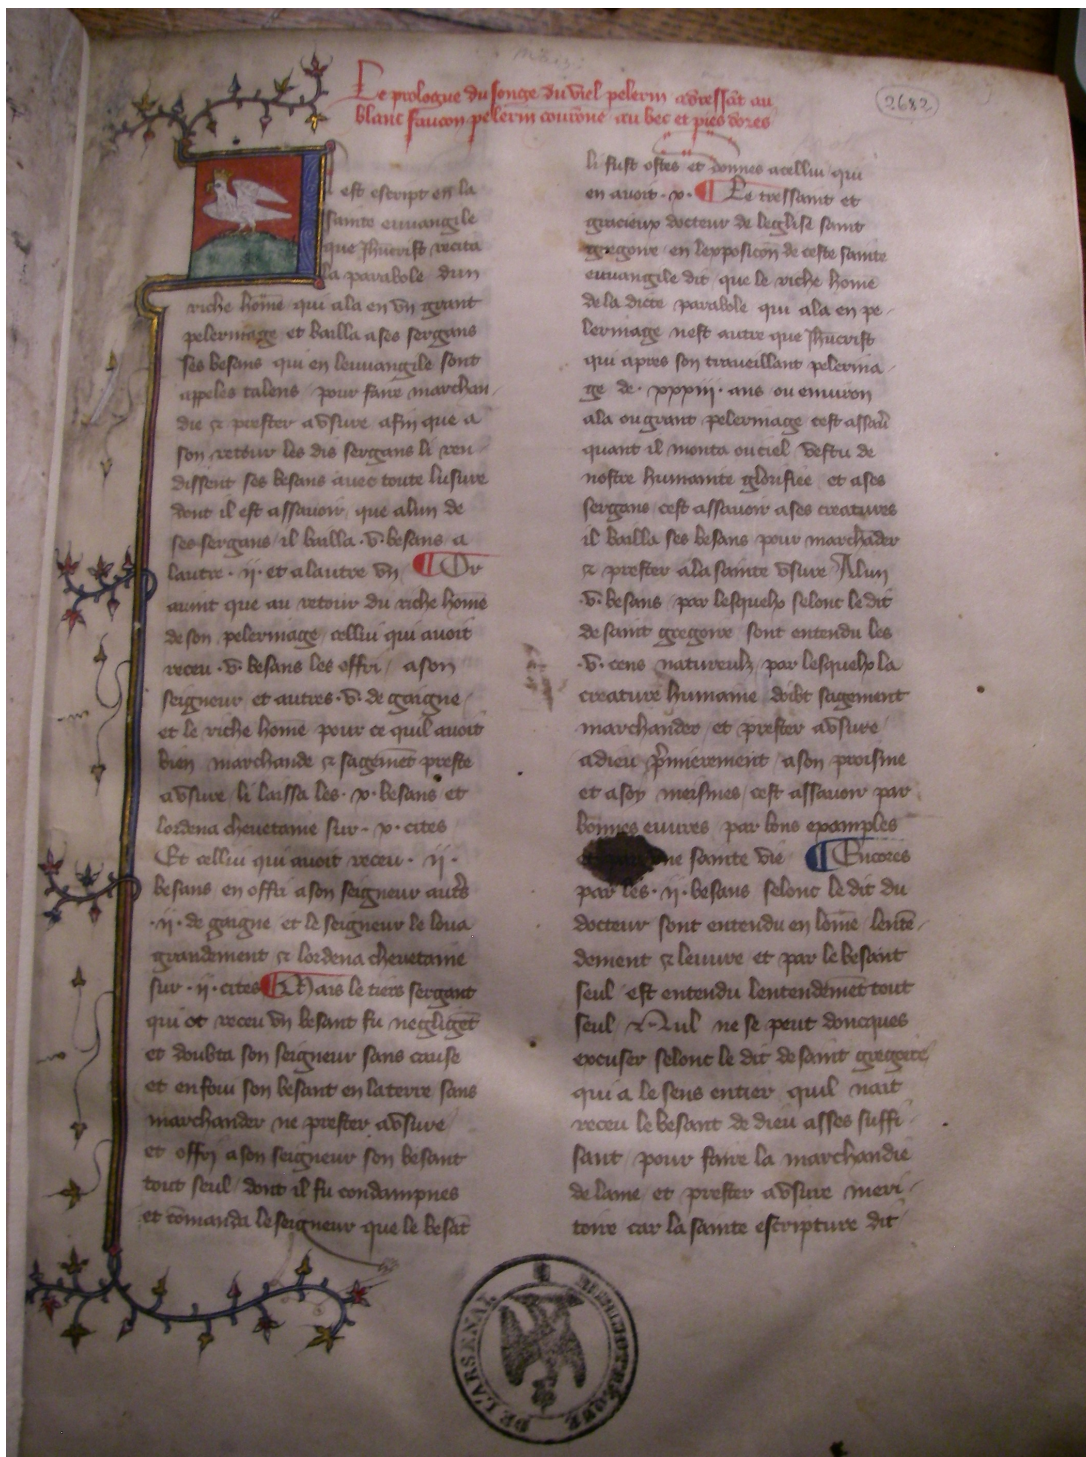 2682
Le prologue du songe du viel pelerin adressāt au
blanc faucon pelerin courōne au bec et pies dores
est escript en la
sainte euuangile
que Jhūcrist recita
la parabole dun
riche hōme qui ala en vn grant
pelerinage et bailla a ses sergans
ses besans qui en leuuangile sont
appeles talens / pour faire marchan /
die & prester a vsure afin que a
son retour les dis sergans li ren /
dissent ses besans auec toute lusure
dont il est assauoir que a lun de
ses sergans il bailla .v. besans a
lautre .ii. et a lautre vn ¶ Or
auint que au retour du riche home
de son pelerinage cellui qui auoit
receu .v. besans les offri / a son
seigneur et autres .v. de gaigne /
et le riche home pour ce quil auoit
bien marchande & sagemēt preste
a vsure li laissa les .x. besans et
lordena cheuetaine sur .x. cites
Et cellui qui auoit receu .ii.
besans en offri a son seigneur aut's
.ii. de gaigne et le seigneur le loua
grandement & lordena cheuetaine
sur .ii. cites ¶ Mais le tiers sergant
qui ot receu vn besant fu negligēt
et doubta son seigneur sans cause
et enfoui son besant en la terre sans
marchander ne prester a vsure /
et offri a son seigneur son besant
tout seul / dont il fu condampnes
et cōmanda le seigneur que le besāt
li fust ostes et donnes a cellui qui
en auoit .x. ¶ Le tressaint et
gracieux docteur de leglise saint
gregoire en lexposicōn de ceste sainte
euuangile dit que le riche home
de la dicte parabole qui ala en pe /
lerinage nest autre que Jhūcrist
qui apres son traueillant pelerina /
ge de .xxxiii. ans ou enuiron
ala ou grant pelerinage cest assau'
quant il monta ou ciel vestu de
nostre humanite glorifiee et a ses
sergans cest assauoir a ses creatures
il bailla ses besans pour marchāder
& prester a la sainte vsure A lun
.v. besans par lesquelx selonc le dit
de saint gregoire sont entendu les
.v. cens natureulz par lesquelx la
creature humaine doibt sagement
marchander et prester a vsure /
a dieu p'mierement a son proisme
et a soy meismes / cest assauoir par
bonnes euures par bons exemples
ne sainte vie ¶ Encores
par les .ii. besans selonc le dit du
docteur sont entendu en lōme lente /
dement & leuure et par le besant
seul est entendu lentendemēt tout
seul & Nul ne se peut doncques
excuser selonc le dit de saint gregoire
qui a le sens entier quil nait
receu le besant de dieu asses suffi /
sant / pour faire la marchandie
de lame et prester a vsure meri /
toire car la sainte escripture dit
BIBLIOTHEQUE DE L'ARSENAL